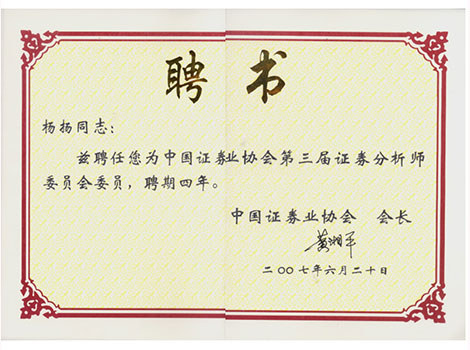 聘书
杨扬同志：
兹聘任您为中国证券业协会第三届证券分析师
委员会委员，聘期四年。
中国证券业协会 会长
黄湘平
二〇〇七年六月二十日